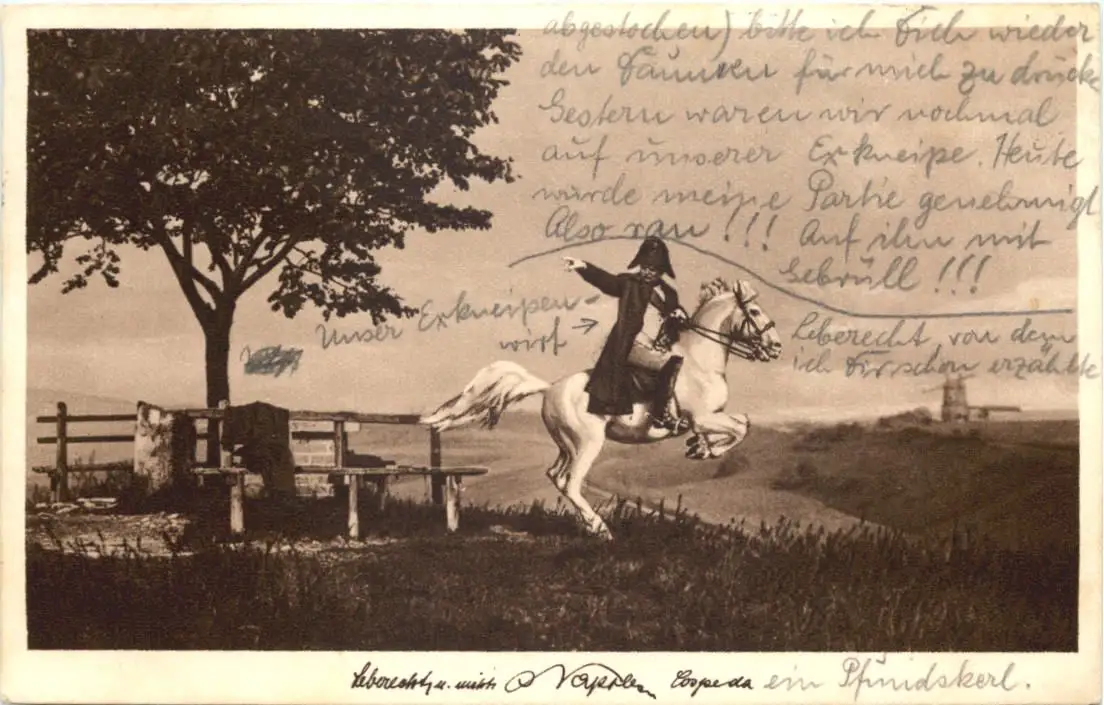 abgestochen) bitte ich Dich wieder
den Daumen für mich zu drücke
Gestern waren wir nochmal
auf unserer Exkneipe. Heute
wurde meine Partie genehmigt
Also ran!!! Auf ihn mit
Gebrüll!!!
Unser Exkneipen-
wirt →
Leberecht, von dem
ich Dir schon erzählte
Cospeda ein Pfundskerl.